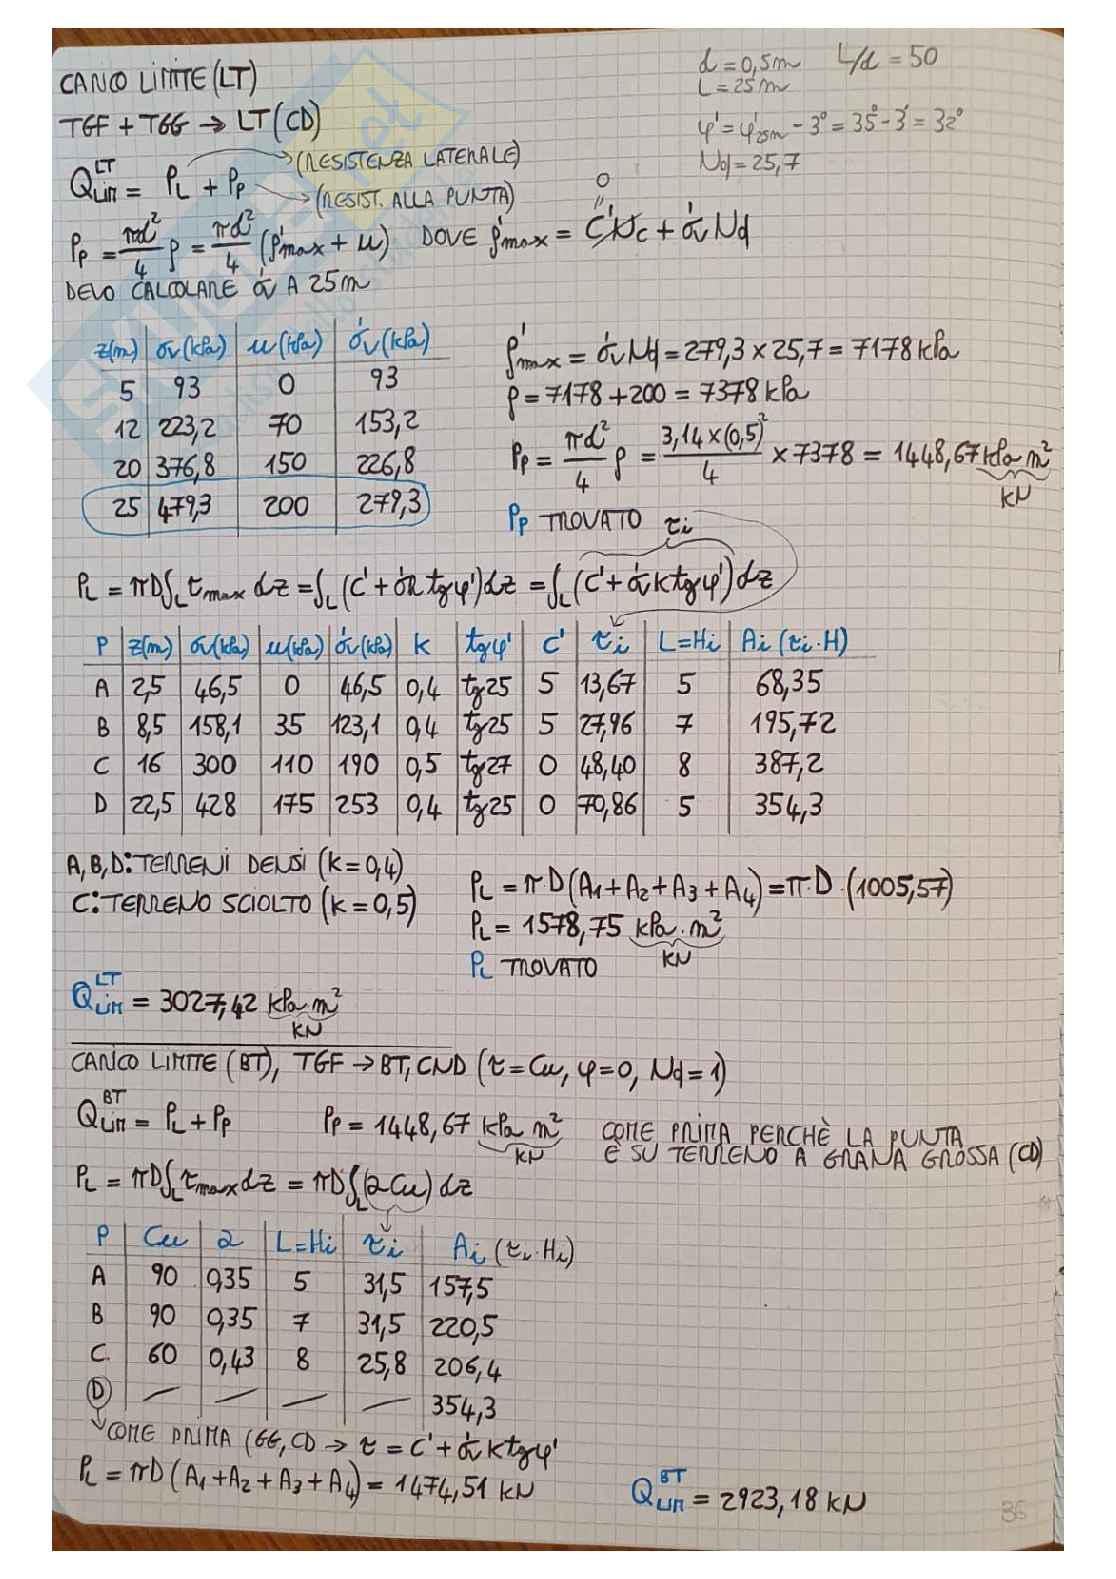 CARICO LIMITE (LT)
d = 0,5m L/d = 50
L = 25m
TGF + TGG → LT (CD)
φ' = φ'25m - 3° = 35° - 3° = 32°
Nq = 25,7
QLIM^LT = PL + PP
(RESISTENZA LATERALE)
(RESIST. ALLA PUNTA)
PP = πd²/4 p = πd²/4 (p'max + u) DOVE p'max = c'Nc + σ'v Nq
0
DEVO CALCOLARE σ'v A 25m
z(m) σv(kPa) u(kPa) σ'v(kPa)
5 93 0 93
12 223,2 70 153,2
20 376,8 150 226,8
25 479,3 200 279,3
p'max = σ'v Nq = 279,3 × 25,7 = 7178 kPa
p = 7178 + 200 = 7378 kPa
PP = πd²/4 p = 3,14 × (0,5)²/4 × 7378 = 1448,67 kPa m²
kN
PP TROVATO
τi
PL = πD∫L τmax dz = ∫L (c' + σ'h tgφ') dz = ∫L (c' + σ'v k tgφ') dz
P z(m) σv(kPa) u(kPa) σ'v(kPa) k tgφ' c' τi L=Hi Ai (τi·H)
A 2,5 46,5 0 46,5 0,4 tg25 5 13,67 5 68,35
B 8,5 158,1 35 123,1 0,4 tg25 5 27,96 7 195,72
C 16 300 110 190 0,5 tg27 0 48,40 8 387,2
D 22,5 428 175 253 0,4 tg25 0 70,86 5 354,3
A, B, D: TERRENI DENSI (k = 0,4)
C: TERRENO SCIOLTO (k = 0,5)
PL = πD (A1 + A2 + A3 + A4) = π·D · (1005,57)
PL = 1578,75 kPa · m²
kN
PL TROVATO
QLIM^LT = 3027,42 kPa m²
kN
CARICO LIMITE (BT), TGF → BT, CND (τ = Cu, φ = 0, Nq = 1)
QLIM^BT = PL + PP PP = 1448,67 kPa m²
kN
COME PRIMA PERCHÈ LA PUNTA
È SU TERRENO A GRANA GROSSA (CD)
PL = πD∫L τmax dz = πD∫L (αCu) dz
P Cu α L=Hi τi Ai (τi·Hi)
A 90 0,35 5 31,5 157,5
B 90 0,35 7 31,5 220,5
C 60 0,43 8 25,8 206,4
D — — — — 354,3
COME PRIMA (GG, CD → τ = c' + σ'v k tgφ'
PL = πD (A1 + A2 + A3 + A4) = 1474,51 kN
QLIM^BT = 2923,18 kN